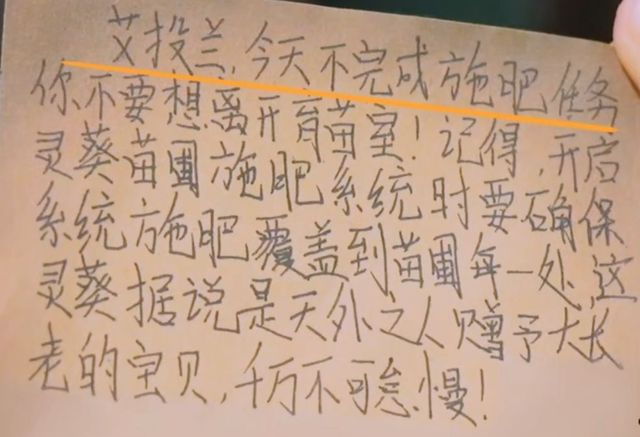 艾投兰,今天不完成施吧任务
你不要想离开育苗室!记得,开启
灵葵苗圃施吧系统时要确保
系统施吧覆盖到苗圃每一处,这
灵葵据说是天外之人赠予大长
老的宝贝,千万不可怠慢!